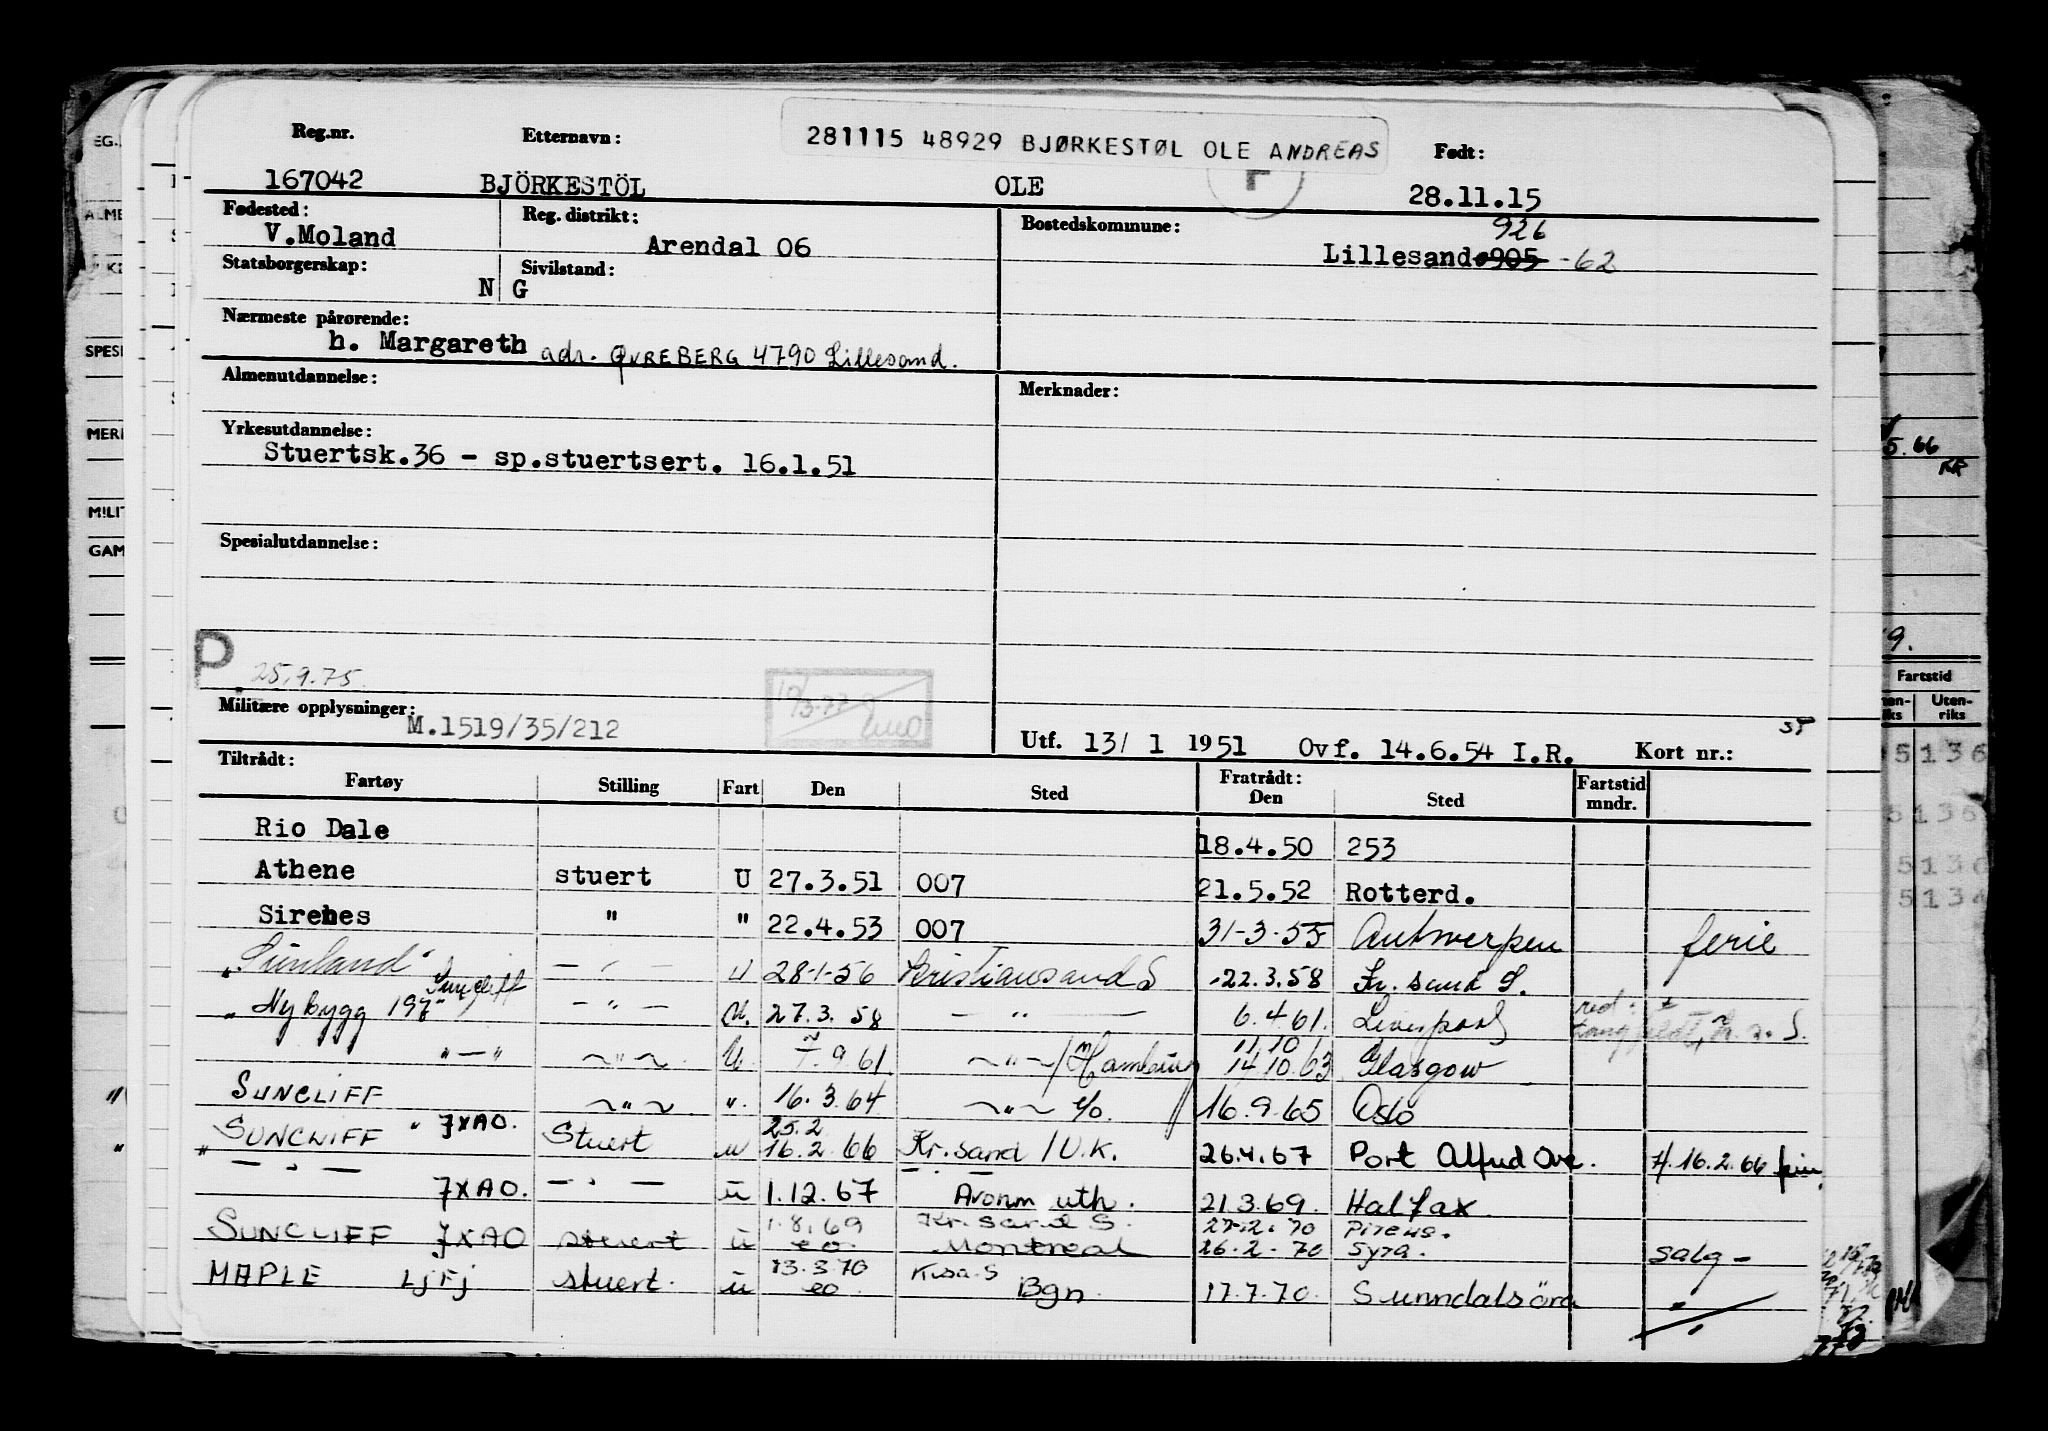 281115 48929 BJØRKESTØL OLE ANDREAS
Reg.nr. Etternavn: Født:
167042 BJÖRKESTÖL OLE 28.11.15
Fødested: Reg. distrikt: Bostedskommune: 926
V.Moland Arendal 06 Lillesand 905 -62
Statsborgerskap: Sivilstand:
N G
Nærmeste pårørende:
h. Margareth adr. ØVREBERG 4790 Lillesand.
Almenutdannelse: Merknader:
Yrkesutdannelse:
Stuertsk.36 - sp.stuertsert. 16.1.51
Spesialutdannelse:
P 25.9.75.
Militære opplysninger: M.1519/35/212
Utf. 13/ 1 1951 Ovf. 14.6.54 I.R. Kort nr.:
Tiltrådt: Fratrådt:
Fartøy Stilling Fart Den Sted Den Sted Fartstid mndr.
Rio Dale 18.4.50 253
Athene stuert U 27.3.51 007 21.5.52 Rotterd.
Sirenes " " 22.4.53 007 31-3-55 Antwerpen ferie
"Sunland" - " - U 28-1-56 Kristiansand S 22.3.58 Kr. sand S.
"Nybygg 197" Suncliff - " - U. 27.3.58 - " - 6.4.61. Liverpool
" - " ~ " ~ U. 9.61 ~ " ~ / Hamburg 14.10.63 Glasgow
SUNCLIFF ~ " ~ ". 16.3.64 ~ " ~ e/o. 16.9.65 Oslo
25.2
"SUNCLIFF" 7XAO. Stuert u 16.2.66 Kr.sand /U.K. 26.4.67 Port Alfred H. 16.2.66
- " - 7XAO. - " - ü 1.12.67 Avonmouth. 21.3.69. Halifax
1.8.69 Kr. sand S. 27.12.70 Pireus.
SUNCLIFF 7XAO stuert ü eo Montreal 26.2.70 Syra. salg -
13.3.70 Krsa. S
MAPLE LJFJ stuert. ü eo. Bgn. 17.7.70. Sunndalsöra "
EG.
SPESI
MERI
MILIT
GAM
5.66
9.
Fartstid
Uten-
riks
5136
5136
5136
5134